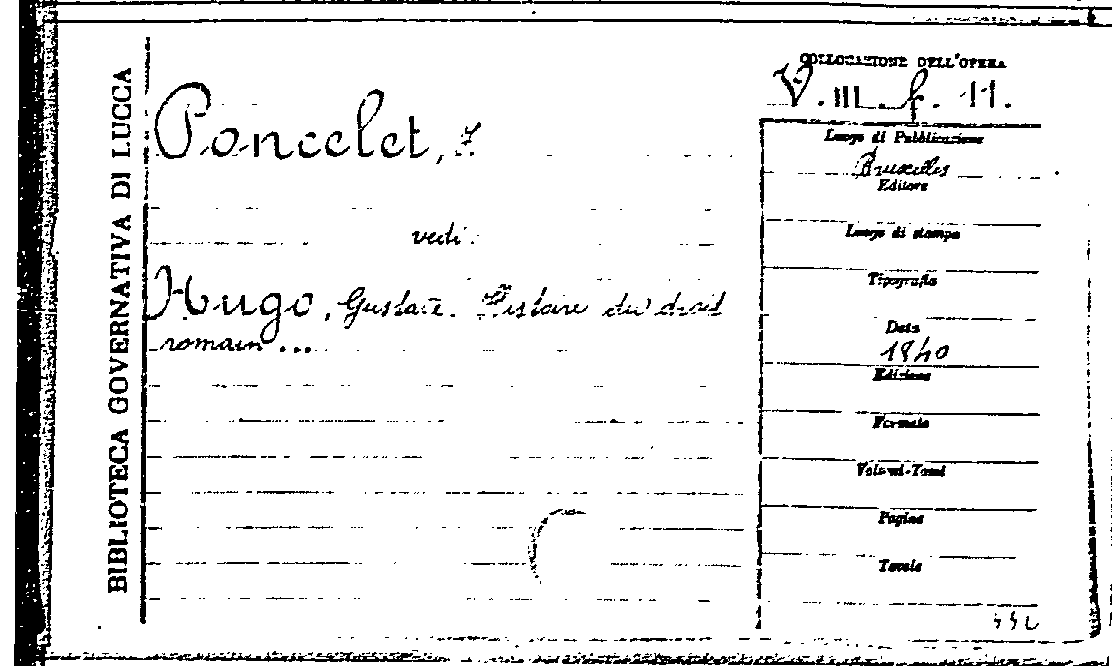 BIBLIOTECA GOVERNATIVA DI LUCCA
COLLOCAZIONE DELL'OPERA
V. III. f. 11.
Poncelet,
Luogo di Pubblicazione
Bruxelles
Editore
vedi:
Luogo di stampa
Tipografia
Hugo, Gustave. Histoire du droit
romain ...
Data
1840
Edizione
Formato
Volumi-Tomi
Pagine
Tavole